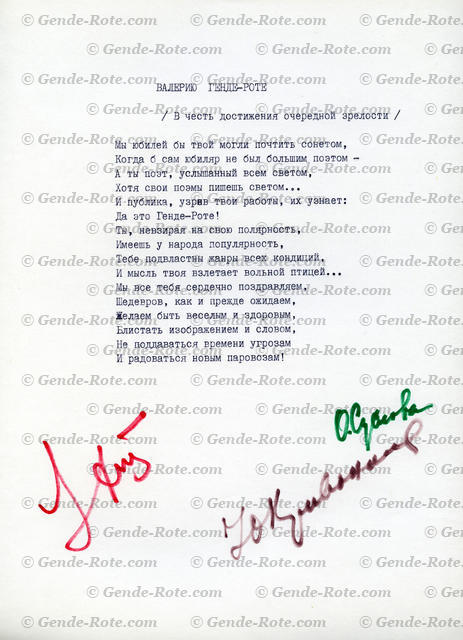 ВАЛЕРИЮ ГЕНДЕ-РОТЕ
/ В честь достижения очередной зрелости /
Мы юбилей бы твой могли почтить сонетом,
Когда б сам юбиляр не был большим поэтом -
А ты поэт, услышанный всем светом,
Хотя свои поэмы пишешь светом...
И публика, узрив твои работы, их узнает:
Да это Генде-Роте!
Ты, невзирая на свою полярность,
Имеешь у народа популярность,
Тебе подвластны жанры всех кондиций,
И мысль твоя взлетает вольной птицей...
Мы все тебя сердечно поздравляем,
Шедевров, как и прежде ожидаем,
Желаем быть веселым и здоровым,
Блистать изображением и словом,
Не поддаваться времени угрозам
И радоваться новым паровозам!
© Gende-Rote.com